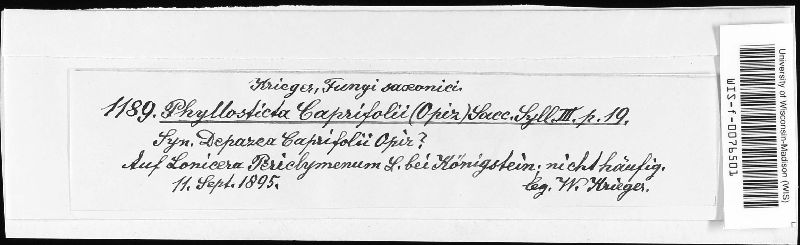 Krieger, Fungi saxonici.
1189. Phyllosticta Caprifolii (Opiz) Sacc. Syll. III. p. 19.
Syn. Depazea Caprifolii Opiz?
Auf Lonicera Periclymenum L. bei Königstein; nicht häufig.
11. Sept. 1895. leg. W. Krieger.
University of Wisconsin-Madison (WIS)
WIS-f-0076503